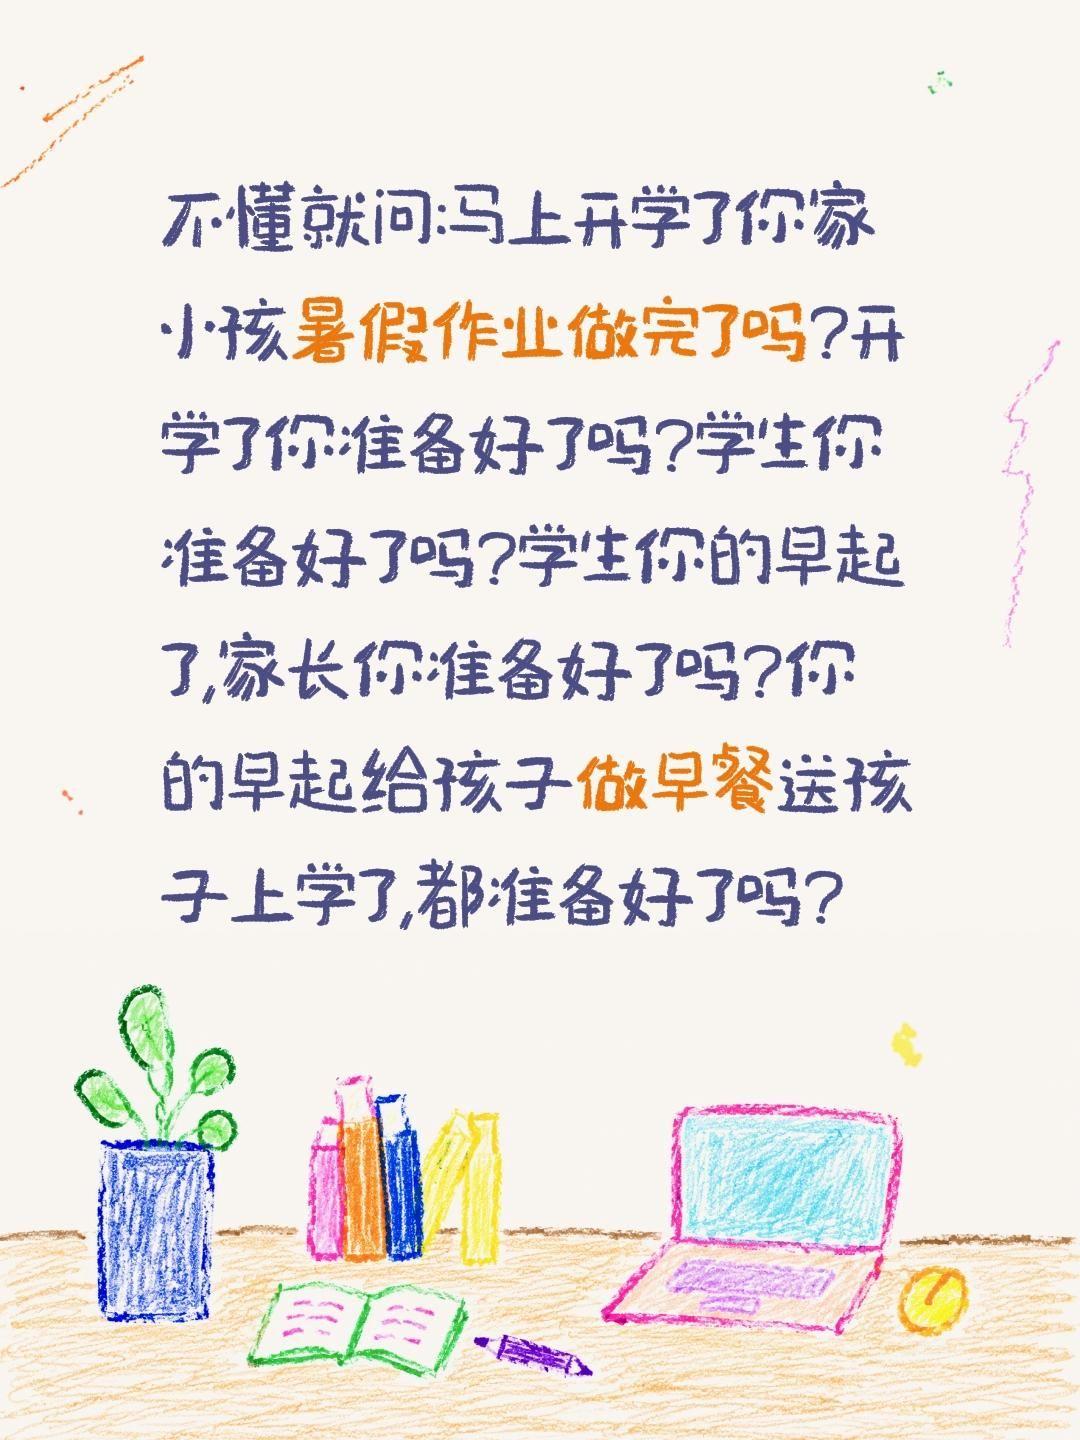 不懂就问:马上开学了你家
小孩暑假作业做完了吗?开
学了你准备好了吗?学生你
准备好了吗?学生你的早起
了,家长你准备好了吗?你
的早起给孩子做早餐送孩
子上学了,都准备好了吗?